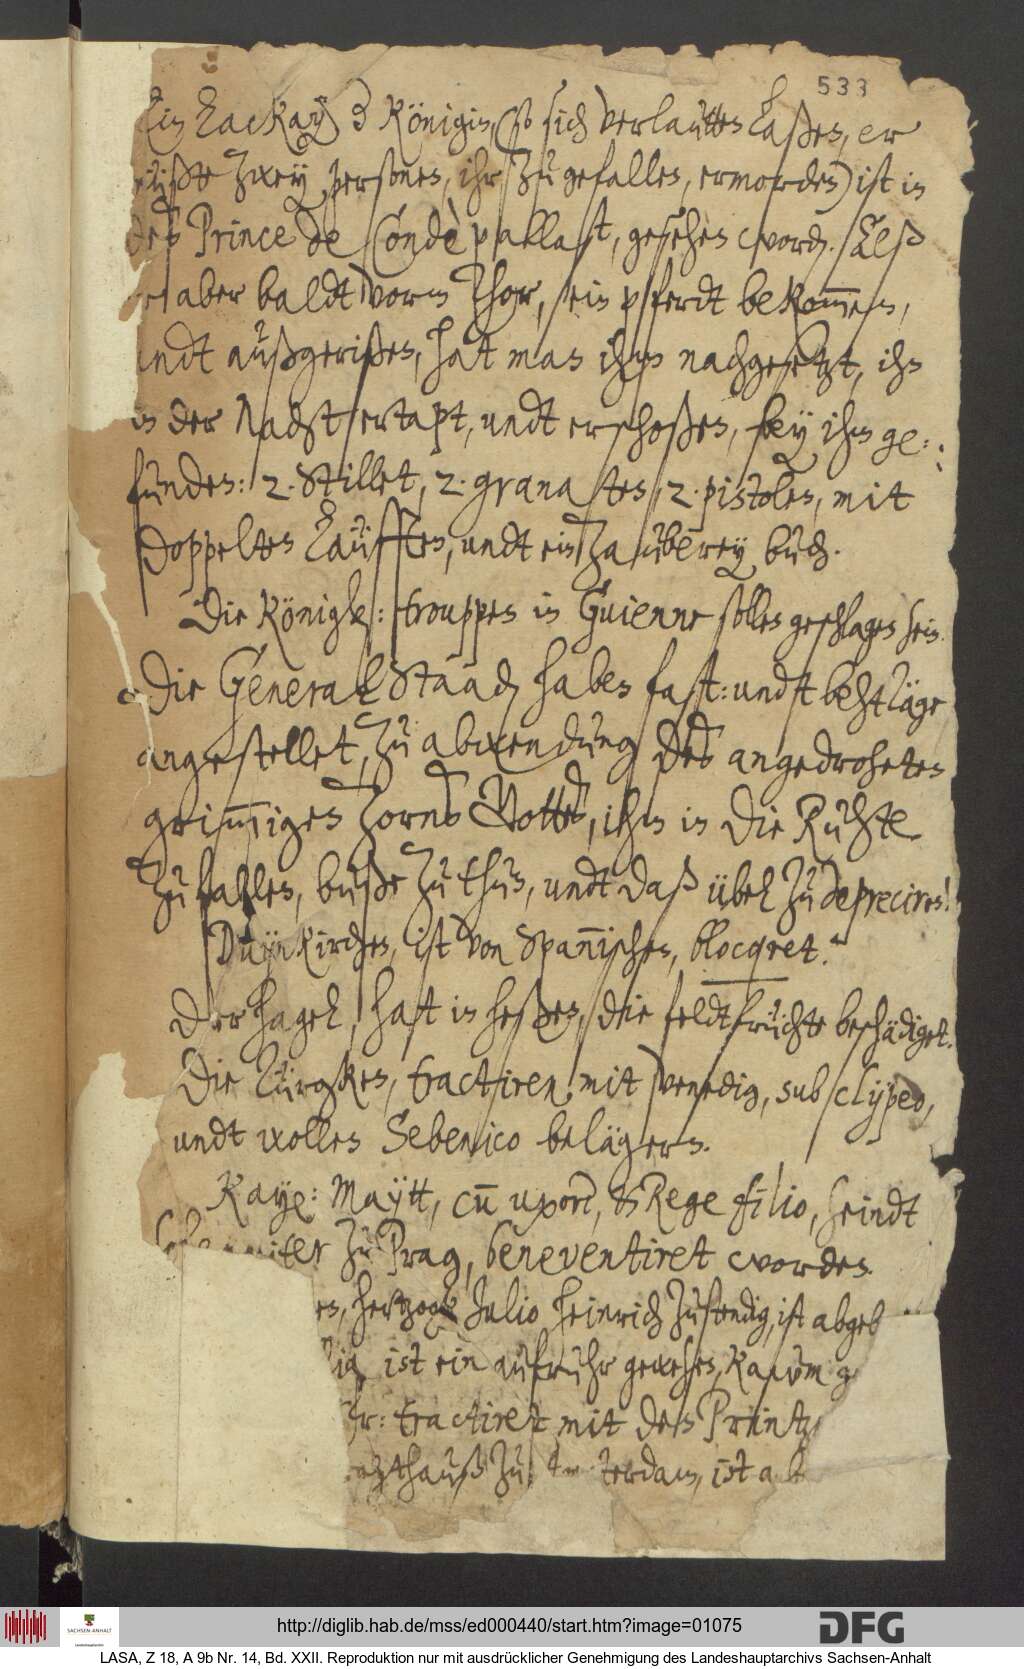 533
Ein Lackay d Königin, (so sich verlautten laßen, er
müßte zwey personen, ihr zu gefallen, ermorden) ist in
des Prince de Condè pallast, gesehen word. Alß
er aber baldt vorm Thor, sein pferdt bekom̄en,
undt außgerißen, hat man ihm nachgesetzt, ihn
in der Nacht ertapt, undt erschoßen, bey ihm ge:
funden: 2. Stillet, 2. granaten, 2. pistolen, mit
doppelten Läufften, undt ein Zauberey buch.
Die Königl: trouppen in Guienne sollen geschlagen sein.
Die General Staad haben fast: undt behttäge
angestellet, zu abwendung des angedroheten
grim̄igen Zorns Gottes, ihm in die Ruhte
zu fallen, buße zu thun, undt daß übel zu depreciren!
Duynkirchen, ist von Span̄ischen, blocqret.
Der hagel, hatt in heßen, die feldtfrüchte beschädiget.
Die Türgken, tractiren mit Venedig, sub clypeo,
undt wollen Sebenico belägern.
Kaye: Maytt, cū uxore, & Rege filio, seindt
zu Prag, beneventiret worden.
en, hertzogk Julio Heinrich zustendig, ist abgeb
ist ein aufruhr gewesen, Kaium g
hr: tractiret mit dem Printz
athhauß zu terdam, ist ab
http://diglib.hab.de/mss/ed000440/start.htm?image=01075
SACHSEN-ANHALT
DFG
LASA, Z 18, A 9b Nr. 14, Bd. XXII. Reproduktion nur mit ausdrücklicher Genehmigung des Landeshauptarchivs Sachsen-Anhalt